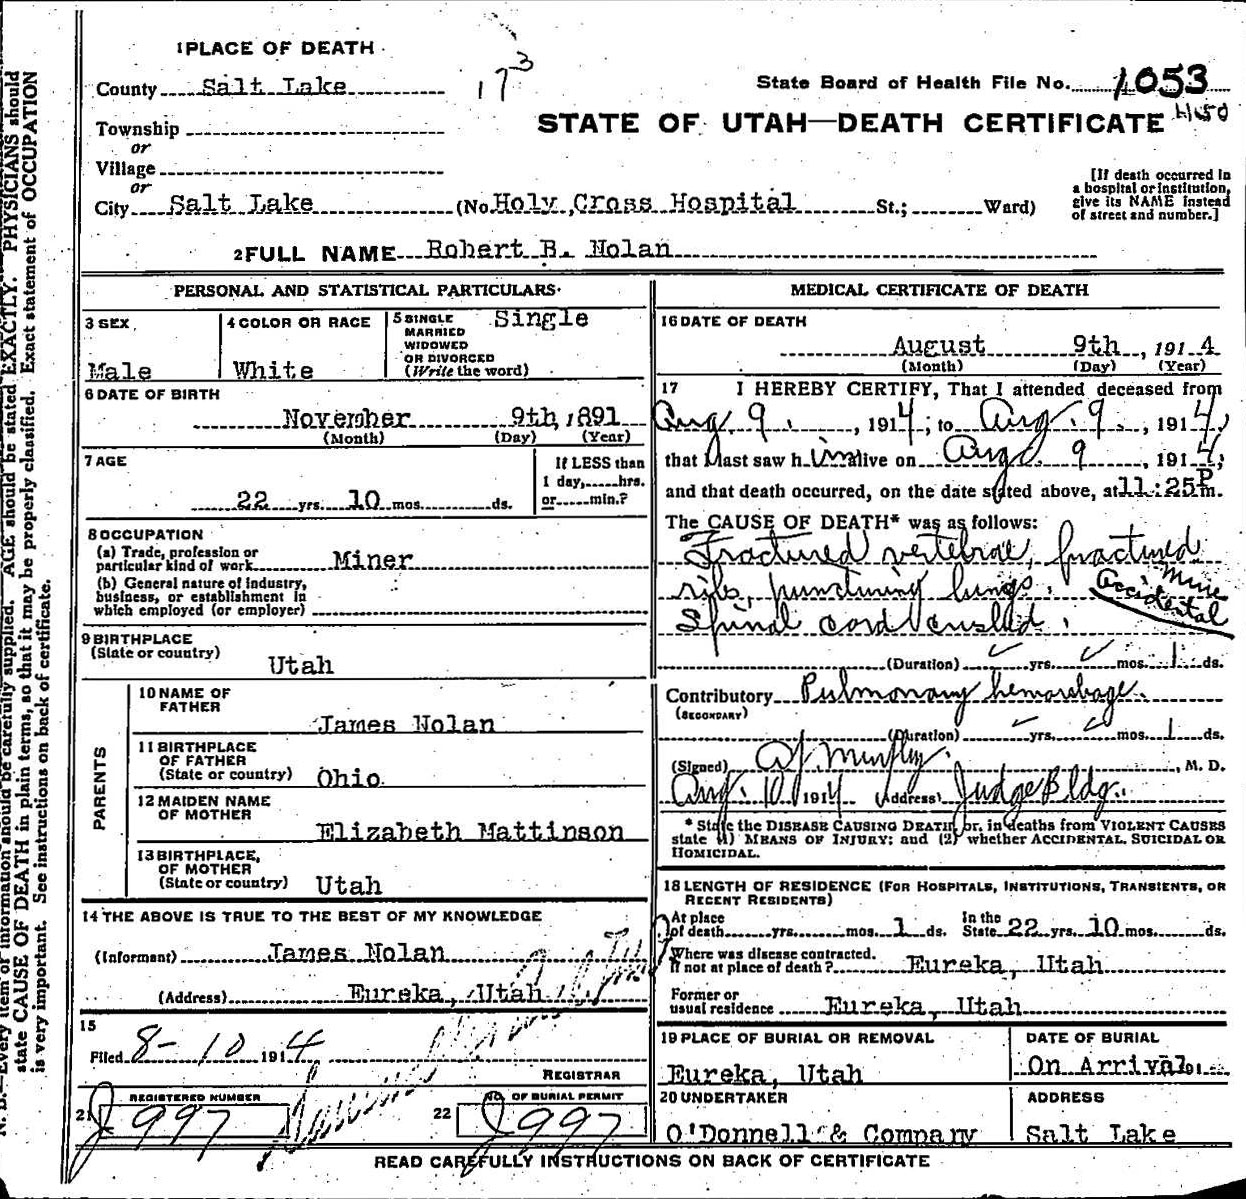 1 PLACE OF DEATH
County Salt Lake
173
State Board of Health File No. 1053
Township
or
STATE OF UTAH—DEATH CERTIFICATE
Village
or
[If death occurred in
a hospital or institution,
give its NAME instead
of street and number.]
City Salt Lake (No. Holy Cross Hospital St.; Ward)
2 FULL NAME Robert B. Nolan
PERSONAL AND STATISTICAL PARTICULARS
3 SEX
Male
4 COLOR OR RACE
White
5 SINGLE
MARRIED
WIDOWED
OR DIVORCED
(Write the word)
Single
6 DATE OF BIRTH
November 9th, 1891
(Month) (Day) (Year)
7 AGE
22 yrs. 10 mos. ds.
If LESS than
1 day, hrs.
or min.?
8 OCCUPATION
(a) Trade, profession or
particular kind of work Miner
(b) General nature of industry,
business, or establishment in
which employed (or employer)
9 BIRTHPLACE
(State or country)
Utah
PARENTS
10 NAME OF
FATHER
James Nolan
11 BIRTHPLACE
OF FATHER
(State or country) Ohio
12 MAIDEN NAME
OF MOTHER
Elizabeth Mattinson
13 BIRTHPLACE,
OF MOTHER
(State or country) Utah
14 THE ABOVE IS TRUE TO THE BEST OF MY KNOWLEDGE
(Informant) James Nolan
(Address) Eureka, Utah
15
Filed 8-10 1914
REGISTRAR
21 REGISTERED NUMBER
J 997
22 NO. OF BURIAL PERMIT
J 997
MEDICAL CERTIFICATE OF DEATH
16 DATE OF DEATH
August 9th, 1914
(Month) (Day) (Year)
17 I HEREBY CERTIFY, That I attended deceased from
Aug. 9, 1914; to Aug. 9, 1914,
that I last saw him alive on Aug 9, 1914,
and that death occurred, on the date stated above, at 11:25 P m.
The CAUSE OF DEATH* was as follows:
Fractured vertebrae, fractured
ribs, puncturing lungs.
Spinal cord crushed.
Mine
Accidental
(Duration) yrs. mos. 1 ds.
Contributory Pulmonary hemorrhage.
(SECONDARY)
(Duration) yrs. mos. 1 ds.
(Signed) M. D.
Aug. 10 1914 (Address) Judge Bldg.
* State the DISEASE CAUSING DEATH, or, in deaths from VIOLENT CAUSES
state (1) MEANS OF INJURY; and (2) whether ACCIDENTAL, SUICIDAL OR
HOMICIDAL.
18 LENGTH OF RESIDENCE (FOR HOSPITALS, INSTITUTIONS, TRANSIENTS, OR
RECENT RESIDENTS)
At place
of death yrs. mos. 1 ds. In the
State 22 yrs. 10 mos. ds.
Where was disease contracted,
if not at place of death? Eureka, Utah
Former or
usual residence Eureka, Utah
19 PLACE OF BURIAL OR REMOVAL
Eureka, Utah
DATE OF BURIAL
On Arrival 191
20 UNDERTAKER
O'Donnell & Company
ADDRESS
Salt Lake
READ CAREFULLY INSTRUCTIONS ON BACK OF CERTIFICATE
N. B.—Every item of information should be carefully supplied. AGE should be stated EXACTLY. PHYSICIANS should
state CAUSE OF DEATH in plain terms, so that it may be properly classified. Exact statement of OCCUPATION
is very important. See instructions on back of certificate.